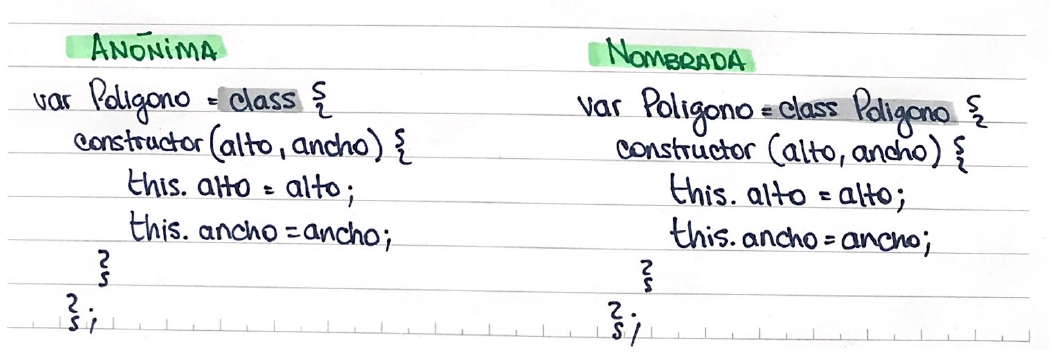 ANÓNIMA
var Poligono = class {
constructor (alto, ancho) {
this. alto = alto;
this. ancho = ancho;
}
};
NOMBRADA
var Poligono = class Poligono {
constructor (alto, ancho) {
this. alto = alto;
this. ancho = ancho;
}
};